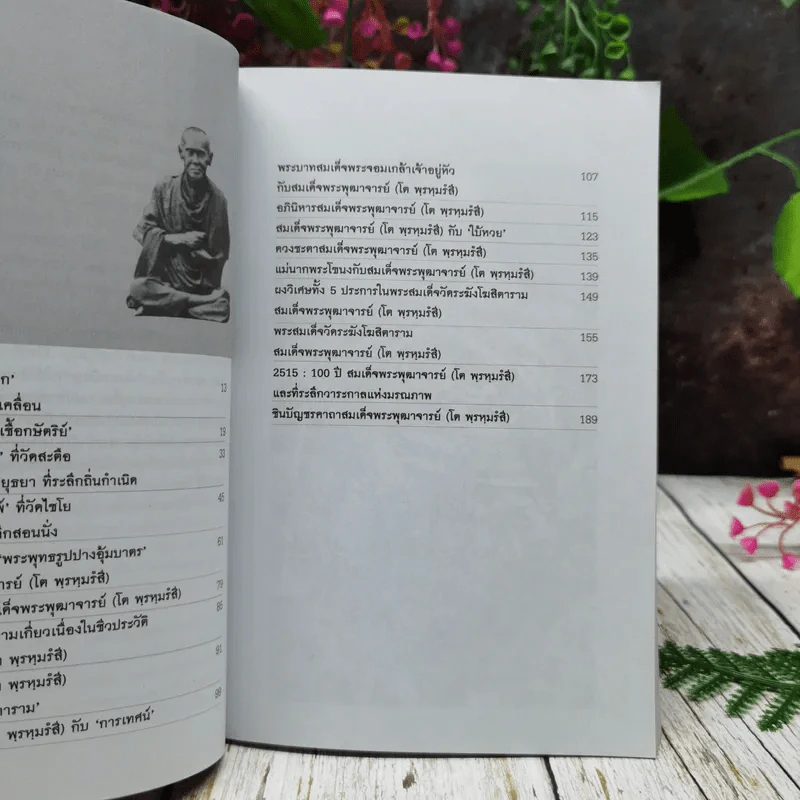 ก'
13
เคลื่อน
เชื้อกษัตริย์'
19
' ที่วัดสะตือ
33
ยุธยา ที่ระลึกถิ่นกำเนิด
' ที่วัดไชโย
45
สอนนั่ง
'พระพุทธรูปปางอุ้มบาตร'
61
ารย์ (โต พฺรหฺมรํสี)
79
ด็จพระพุฒาจารย์ (โต พฺรหฺมรํสี)
85
ามเกี่ยวเนื่องในชีวประวัติ
พฺรหฺมรํสี)
91
พฺรหฺมรํสี)
99
าราม'
พฺรหฺมรํสี) กับ 'การเทศน์'
พระบาทสมเด็จพระจอมเกล้าเจ้าอยู่หัว
กับสมเด็จพระพุฒาจารย์ (โต พฺรหฺมรํสี) 107
อภินิหารสมเด็จพระพุฒาจารย์ (โต พฺรหฺมรํสี) 115
สมเด็จพระพุฒาจารย์ (โต พฺรหฺมรํสี) กับ 'ใบ้หวย' 123
ดวงชะตาสมเด็จพระพุฒาจารย์ (โต พฺรหฺมรํสี) 135
แม่นากพระโขนงกับสมเด็จพระพุฒาจารย์ (โต พฺรหฺมรํสี) 139
ผงวิเศษทั้ง 5 ประการในพระสมเด็จวัดระฆังโฆสิตาราม 149
สมเด็จพระพุฒาจารย์ (โต พฺรหฺมรํสี)
พระสมเด็จวัดระฆังโฆสิตาราม 155
สมเด็จพระพุฒาจารย์ (โต พฺรหฺมรํสี)
2515 : 100 ปี สมเด็จพระพุฒาจารย์ (โต พฺรหฺมรํสี) 173
และที่ระลึกวาระกาลแห่งมรณภาพ
ชินบัญชรคาถาสมเด็จพระพุฒาจารย์ (โต พฺรหฺมรํสี) 189